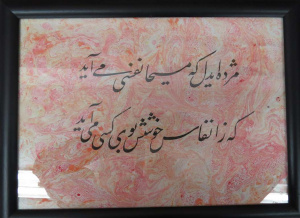 مژده ایدل که مسیحا نفسی می آید
که ز انفاس خوشش بوی کسی می آید